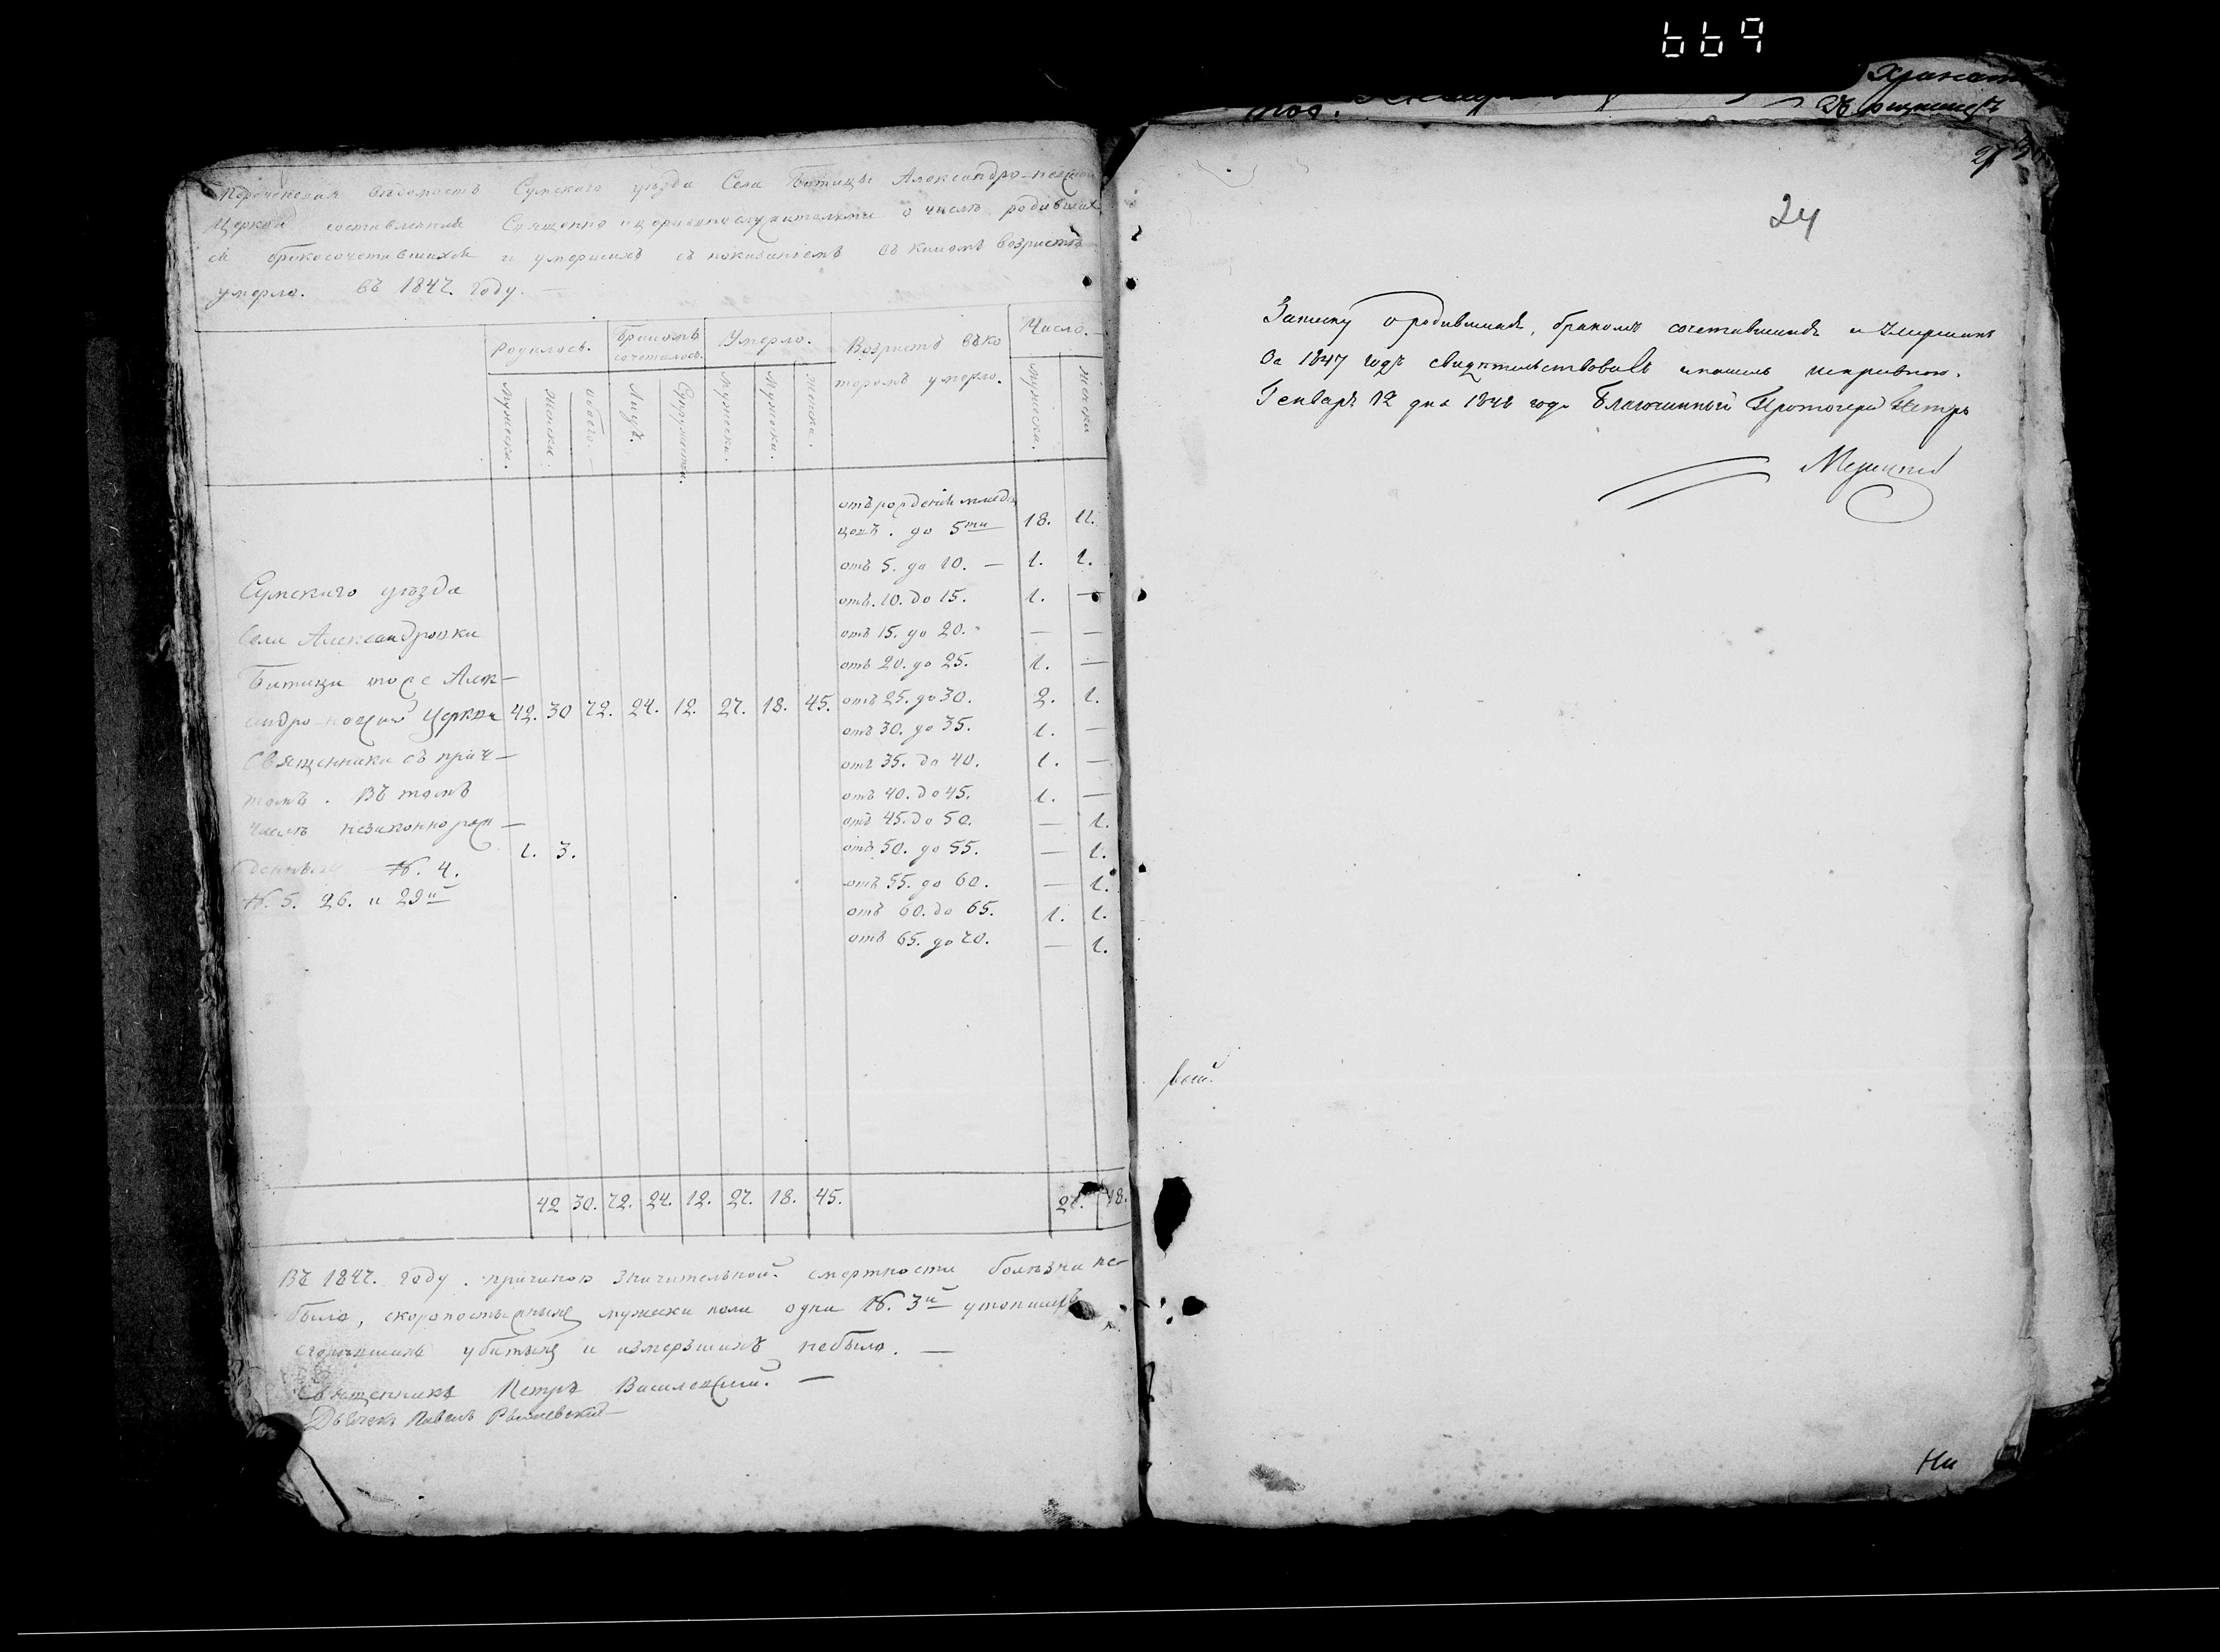 669
24
Перечневая вѣдомость Сумскаго уѣзда Села Битицы Александро-невской
Церкви составленная Священно и церковнослужителями о числѣ родивших
ся бракосочетавшихся и умершихъ съ показаніемъ въ какомъ возрастѣ
умерло. въ 1847. году. —
Родилось. Бракомъ сочеталось. Умерло. Возрастъ въ ко
торомъ умерло. Число.
Мужеска. Женска. Обаего. Лицъ. Супружествъ. Мужеска. Мужеска. Женска. Мужеска. Женска
отъ рожденія младен
цовъ. до 5ти 18. 11.
отъ 5. до 10. — 1. 1.
отъ. 10. до 15. 1. —
отъ 15. до 20. — —
отъ 20. до 25. 1. —
отъ 25. до 30. 2. 1.
отъ 30. до 35. 1. —
отъ 35. до 40. 1. —
отъ 40. до 45. 1. —
отъ 45. до 50. — 1.
отъ 50. до 55. — 1.
отъ 55. до 60. — 1.
отъ 60. до 65. 1. 1.
отъ 65. до 70. — 1.
Сумскаго уѣзда
Села Александровки
Битици тоже Алек—
сандро-невской Церкви 42. 30 72. 24. 12. 27. 18. 45.
Священники съ прич—
томъ. Въ томъ
числѣ незаконнорож—
денныхъ — №. 4. 1. 3.
№. 5. 26. и 29й
42 30. 72. 24. 12. 27. 18. 45. 27. 18.
Въ 1847. году. причиною значительной смертности болѣзни не—
было, скоропостыжныхъ мужеска пола одна №. 3й утопшихъ
сгорѣвшихъ убитыхъ и измерзшихъ небыло. —
Священникъ Петръ Василевскій. —
Дьячекъ Павелъ
Записку о родившихся, бракомъ сочетавшихся и Умершихъ
За 1847 годъ свидѣтельствовалъ и нашелъ исправною.
Генваря 12 дня 1848 года Благочинный Протоіерей Петръ